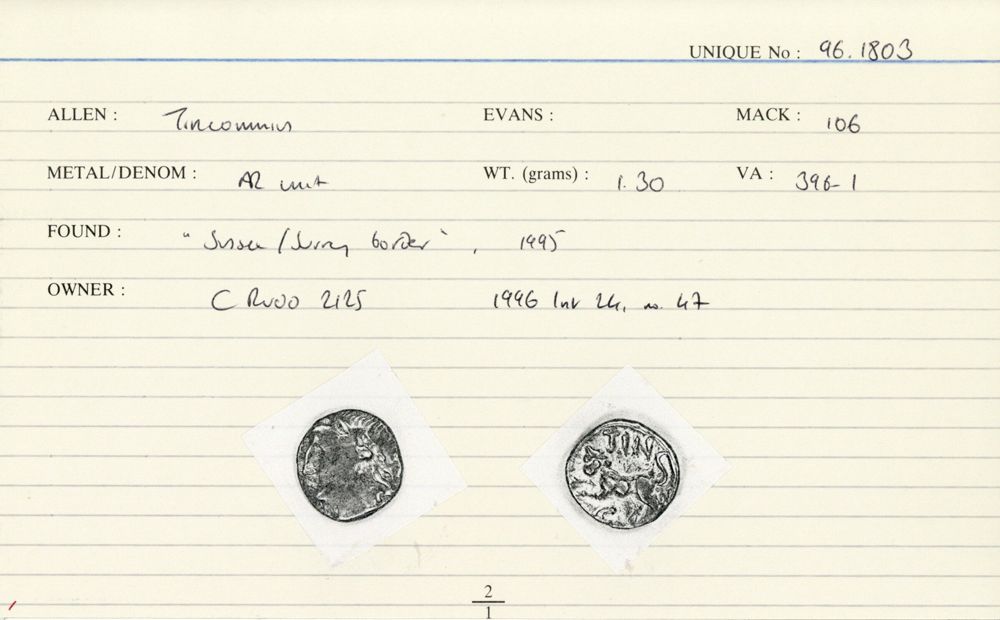 UNIQUE No : 96.1803
ALLEN : Tincommius EVANS : MACK : 106
METAL/DENOM : AR unit WT. (grams) : 1.30 VA : 396-1
FOUND : "Sussex/Surrey border", 1995
OWNER : C Rudd 2125 1996 list 24, no. 47
TIN
2
1